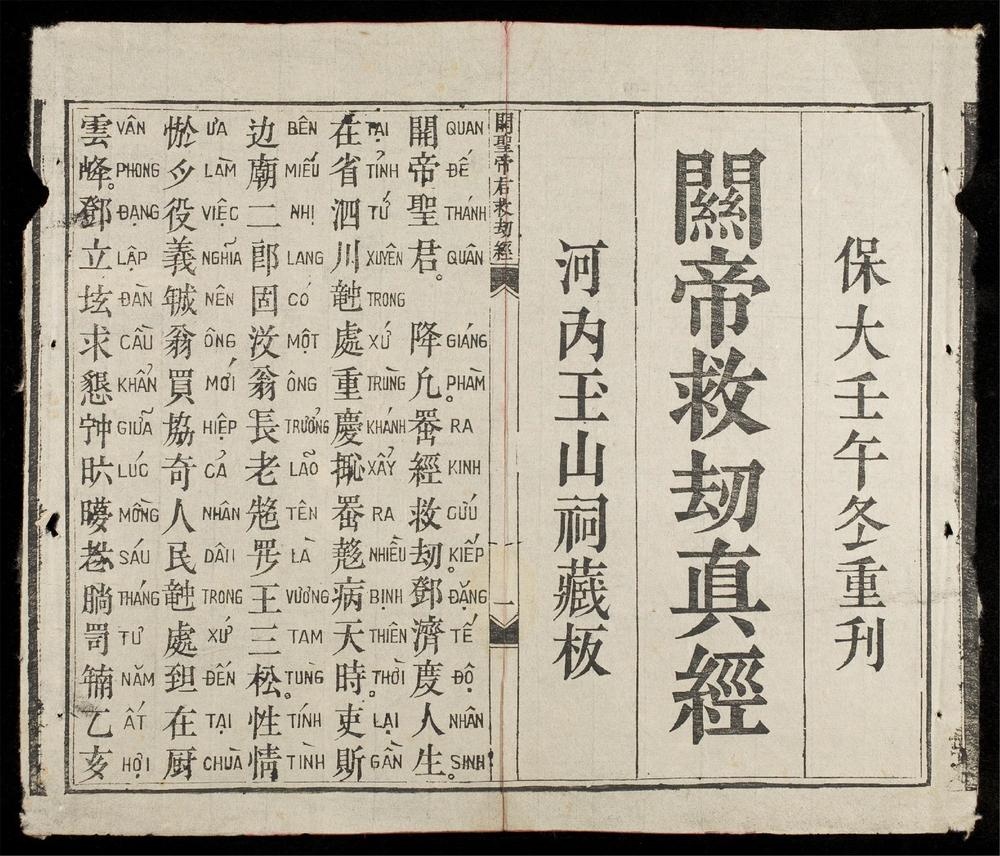 保大壬午冬重刊
關帝救刼真經
河内玉山祠藏板
關聖帝君救刼經
一
關帝聖君。降凢。𠚢經救刼。鄧濟度人生。
QUAN ĐẾ THÁNH QUÂN GIÁNG PHÀM RA KINH CỨU KIẾP ĐẶNG TẾ ĐỘ NHÂN SINH
在省泗川𥪝處重慶𠚢病天時。吏斯
TẠI TỈNH TỨ XUYÊN TRONG XỨ TRÙNG KHÁNH XẨY RA NHIỀU BỊNH THIÊN THỜI LẠI GẦN
边廟二郎固没翁長老王三松。性情
BÊN MIẾU NHỊ LANG CÓ MỘT ÔNG TRƯỞNG LÃO TÊN LÀ VƯƠNG TAM TÙNG TÍNH TÌNH
於役義翁買協奇人民𥪝處𦤾在厨
ƯA LÀM VIỆC NGHĨA NÊN ÔNG MỚI HIỆP CẢ NHÂN DÂN TRONG XỨ ĐẾN TẠI CHÙA
雲峰。鄧立坛求懇𣎃乙亥
VÂN PHONG ĐẠNG LẬP ĐÀN CẦU KHẨN GIỮA LÚC MỒNG SÁU THÁNG TƯ NĂM ẤT HỢI